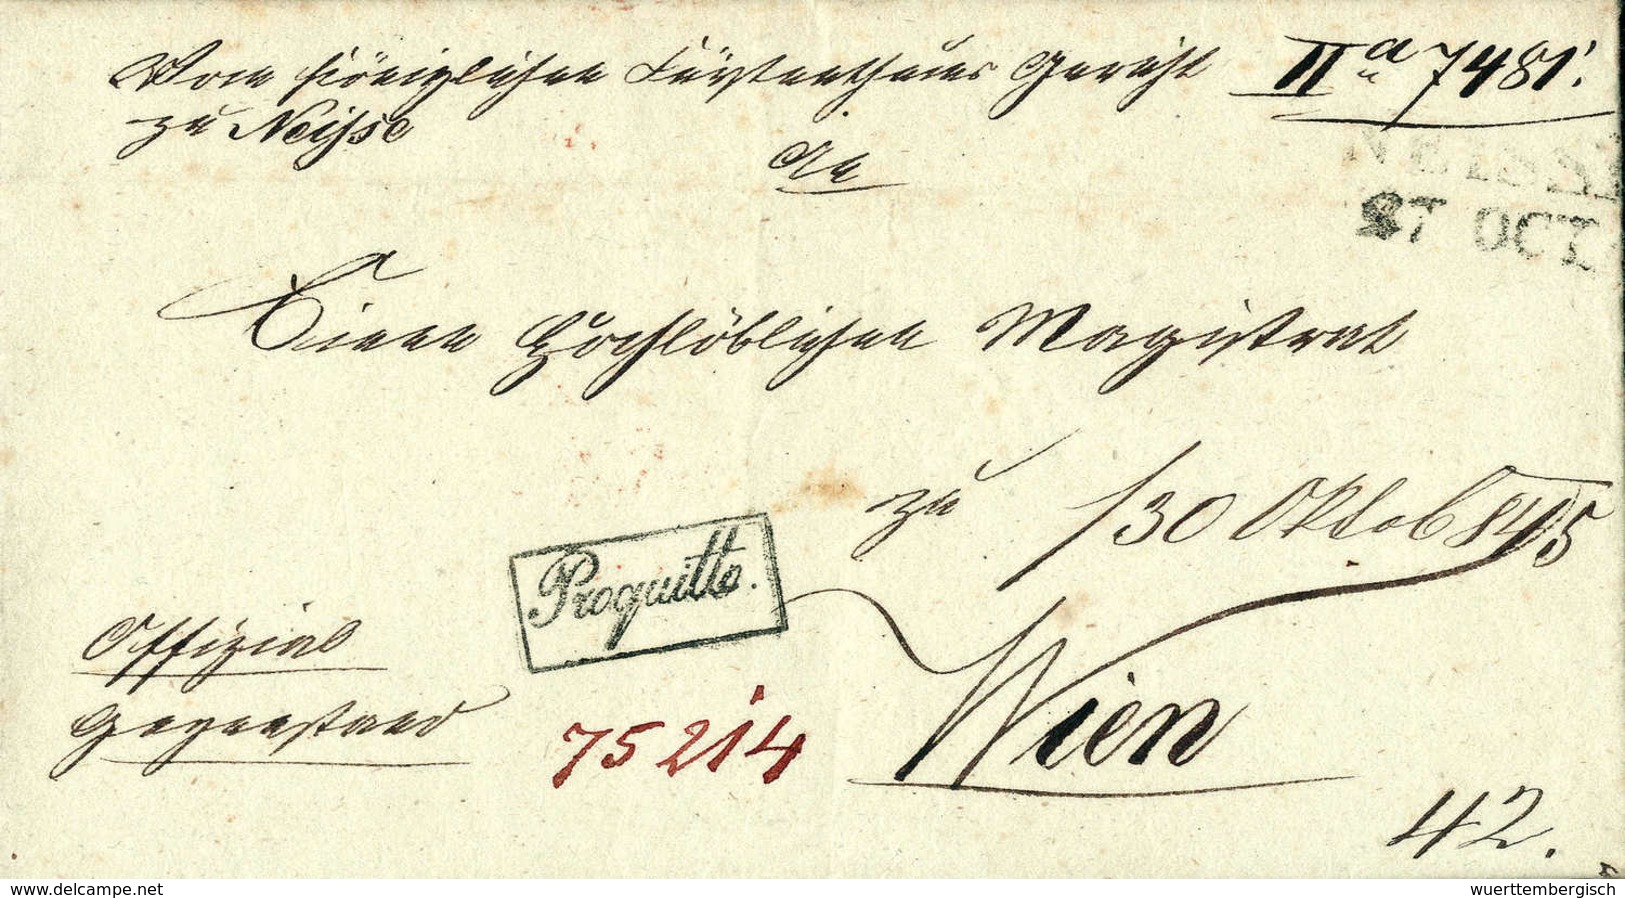 Vom Königlichen Fürstenthums Gericht
zu Neisse
IIa 7481.
NEISSE
27 OCT.
An
Einen Hochlöblichen Magistrat
zu
/30 Oktob 845
Proquitto.
Wien
Offizial
Gegenstand
75214
42.
www.delcampe.net
wuerttembergisch